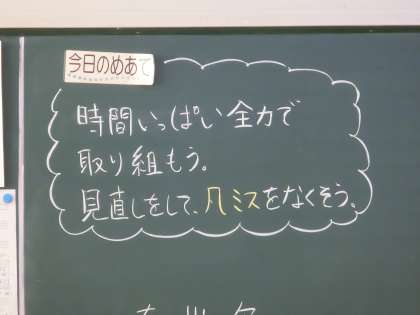 今日のめあて
時間いっぱい全力で
取り組もう。
見直しをして、凡ミスをなくそう。